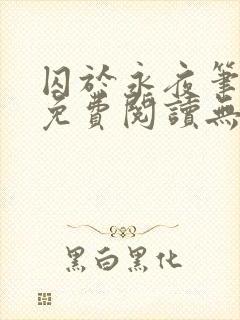 囚於永夜筆
免費閱讀無
黑白黑化